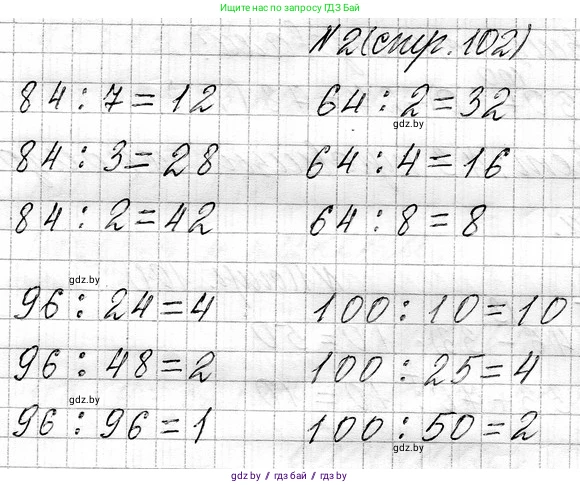 Ищите нас по запросу ГДЗ Бай
№2(стр. 102)
84 : 7 = 12
64 : 2 = 32
gdz.by
84 : 3 = 28
64 : 4 = 16
84 : 2 = 42
64 : 8 = 8
gdz.by
96 : 24 = 4
100 : 10 = 10
96 : 48 = 2
100 : 25 = 4
gdz.by
96 : 96 = 1
100 : 50 = 2
gdz.by
gdz.by / гдз бай / gdz.by